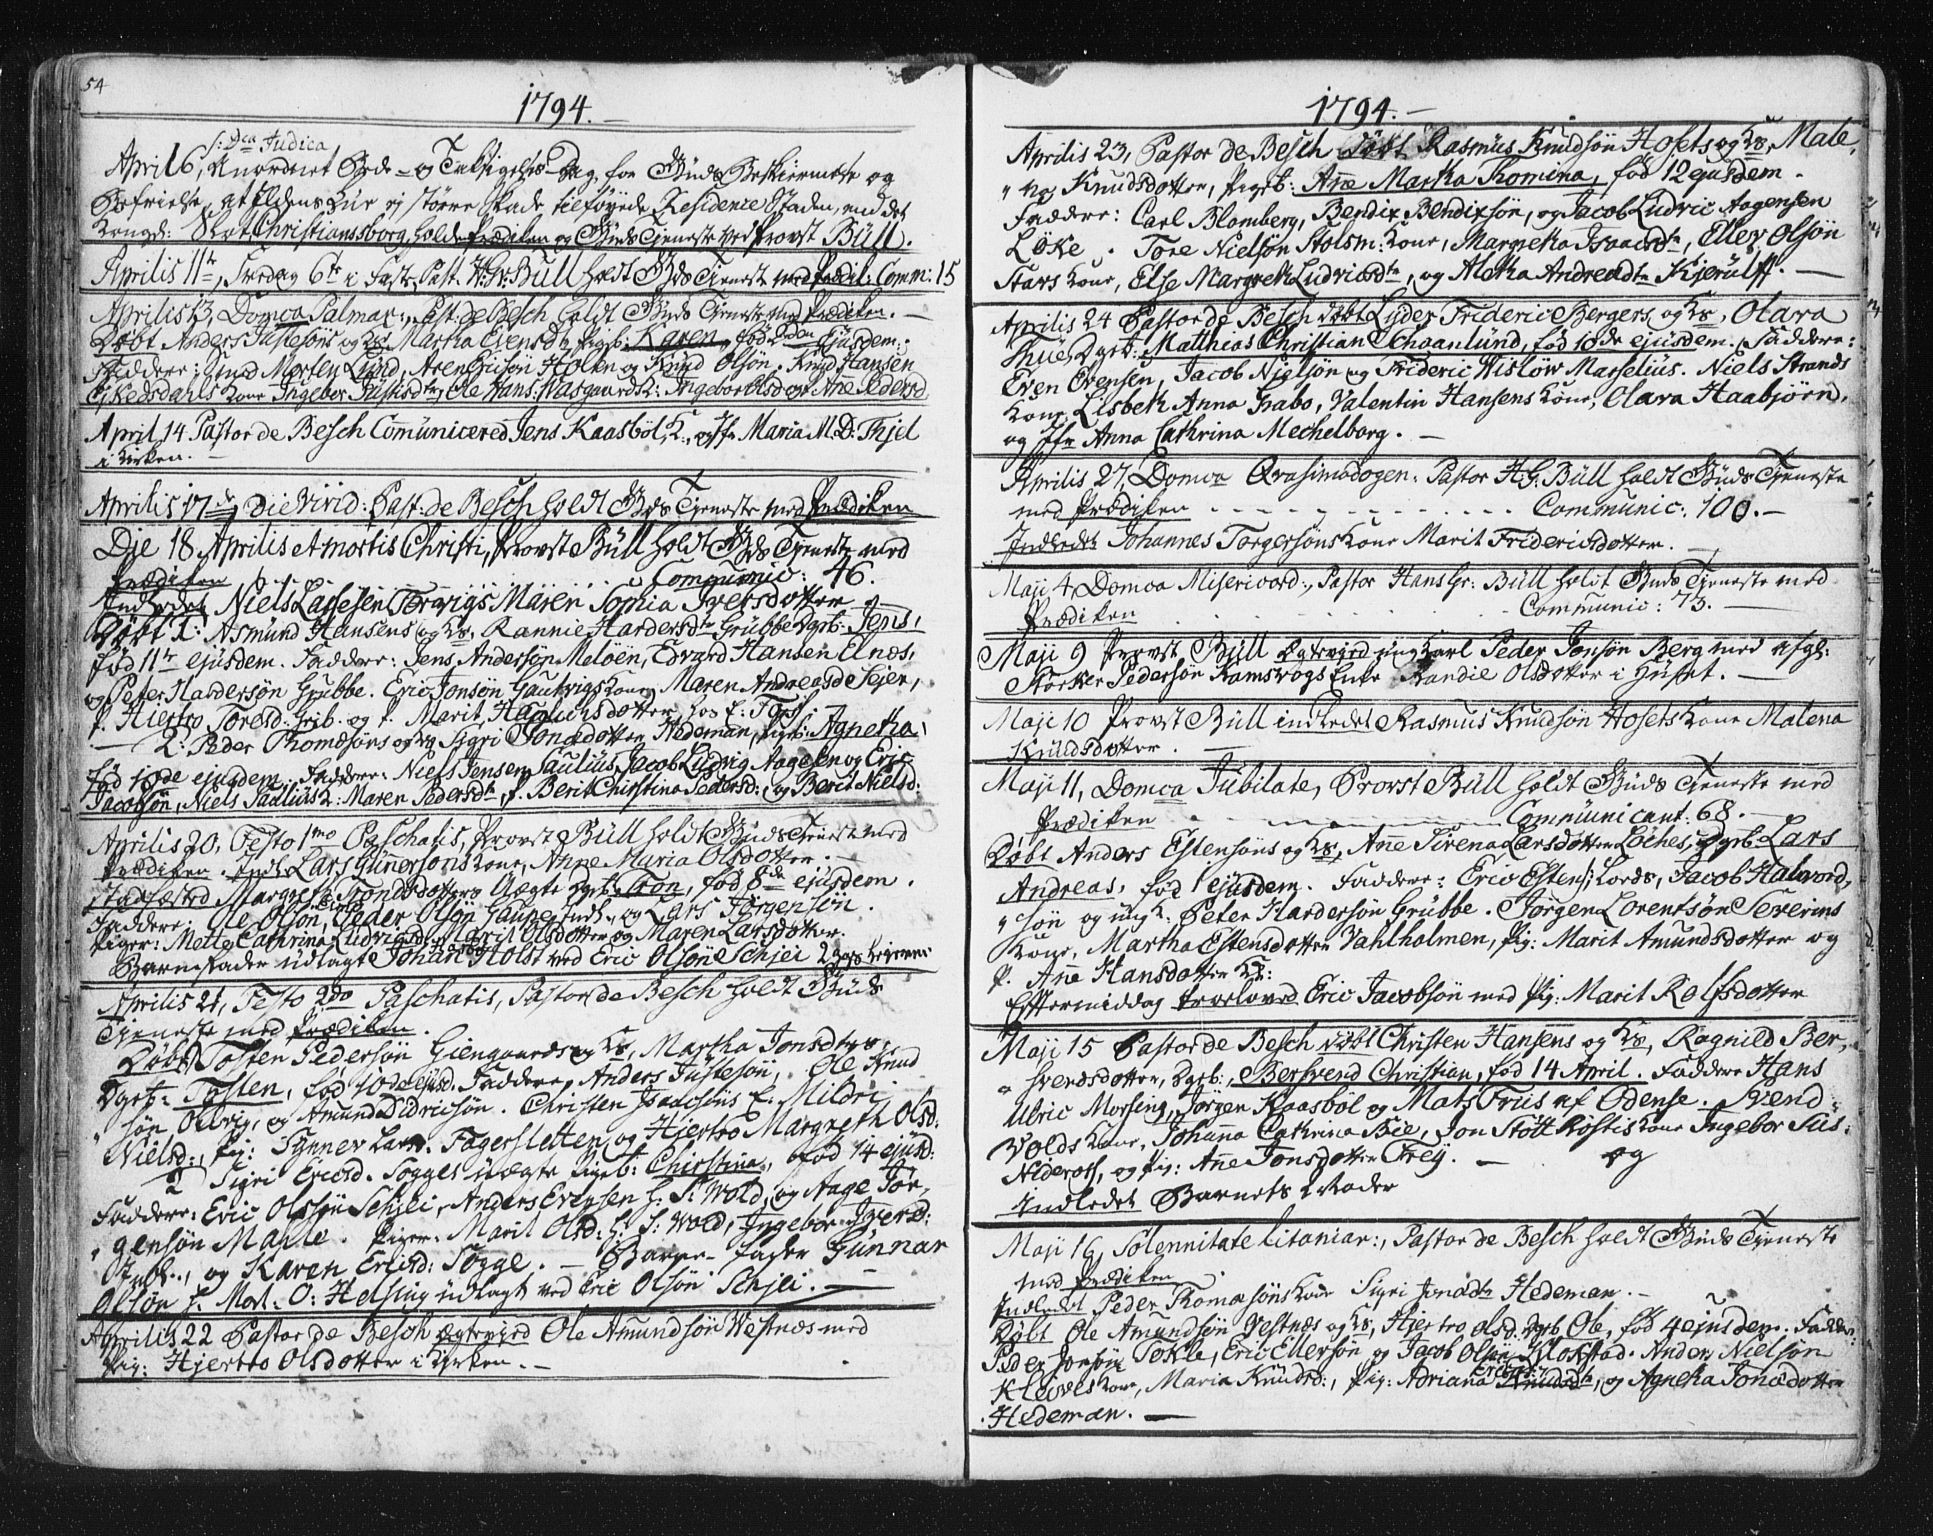 54
1794.
s: Dca Judica
April 6, Anordnet Bede- og Taksigelses-Dag, for Guds Beskiermelse og
Befrielse, at Ildens Lue ej større Skade tilføyede Residence Staden, end det
Kongel: Slot, Christiansborg, holdt Prædiken og Guds Tjeneste ved Provst Büll.
Aprilis 11te, Fredag 6te i Faste, Past. H. Gr: Büll holdt Gds Tjeneste med Prædik: Comm: 15
Aprilis 13, Domca Palmar:, Past. de Besch holdt Guds Tjeneste med Prædiken.
Døbt Anders Justesøns og Ks Martha Evensdr Pigeb: Karen, fød 2den Ejusdem.
Faddere: Morten Lund, Aren Ericsøn Holen og Knud Olsøn. Knud Hansen
Eskedsdahls Kone Ingebor Justisdtr, Ole Hans: K: Ingebor Olsd og Ane Pedersd
April 14 Pastor de Besch Comunicered Jens Kaasbøl, K:, og Jfr Maria M.D: Thjel
i Kirken.
Aprilis 17de, Die Virid: Past: de Besch holdt Gds Tjeneste med Prædiken
Die 18 Aprilis et mortis Christi, Provst Büll holdt Gds Tjeneste med
Prædiken Communic: 46.
Indledet Niels Lassesen Torvigs Maren Sophia Iversdotter
Døbt 1: Asmund Hansens og Ks, Rannie Hardersdtr Grubbe Dgeb: Jens,
fød 11te ejusdem. Faddere: Jens Andersøn Meløen, Edvard Hansen Elnes,
og Peter Hardersøn Grubbe. Eric Jonsøn Gautvigs Kone, Maren Andreasd Sejer,
P. Hiertro Toresd: Grib. og P. Marit Henrichsdotter hos E: Torsf.
2: Peder Thomæsøns og Ks Sigri Jonædotter Hedeman, Pigeb: Agnetha,
fød 10de ejusdem. Faddere: Niels Jensen Paulius, Jacob Ludvig Aagesen og Eric
Jacobsøn, Niels Paulius K: Maren Pedersdtr, P. Berit Christina Pedersd:, og Berit Nielsd:
Aprilis 20, Festo 1mo Paschatis, Provst Büll holdt Guds Tjeneste med
Prædiken. Indl: Lars Gunersøns Kone, Anne Maria Olsdotter.
Stadfæsted Margreth Tronsdotters Uægte Dgeb: Tron, fød 8de ejusdem.
Faddere: Ole Olsøn, Peder Olsøn Gaupe, og Lars Jørgensøn.
Piger: Mette Cathrina Ludvigsd., Marit Olsdotter og Maren Larsdotter.
Barnefader udlagt Johan Holst ved Eric Olsøn Schjei
Aprilis 21, Festo 2do Paschatis, Pastor de Besch holdt Guds
Tjeneste med Prædiken.
Døbt 1 Tosten Pedersøn Giengaards og Ks, Martha Jonsdtrs,
Dgeb: Tosten, fød 10de ejusd. Faddere, Anders Justesøn, Ole Knud
søn Oelvig, og Amund Didricsøn. Christen Isaacsøns E: Mildri
Nielsd:, Pig: Synner Lars. Fagersletten og Hjertro Margreth Olsd:
2 Sigri Ericsd. Sogges uægte Pigeb: Chirstina, fød 14 ejusd:
Faddere: Eric Olssøn Schjei, Anders Evensen h: S: Wold, og Aage Jør,
gensøn Mahle. Piger: Marit Olsd: h: S: Wold, Ingebor Iversd:
og Karen Ericsd: Sogge. Barne-Fader Gunnar
Olsøn h. Mort. O: Helsing udlagt ved Eric Olsøn Schjei.
Aprilis 22 Pastor de Besch Egtevied Ole Amundsøn Westnes med
Pig: Hjertro Olsdotter i Kirken.
1794.
Aprilis 23, Pastor de Besch døbt Rasmus Knudsøn Hosets og Ks, Male,
na Knudsdotter, Pigeb: Añe Martha Thomina, fød 12 ejusdem.
Faddere: Carl Blomberg, Bendix Bendixsøn, og Jacob Ludvic Aagensen
Løke. Tore Nielsøn Stolsm: Kone, Margretha Isaacsdtr, Eller Olsøn
Stars Kone, Else Margreth Ludvicsdtr, og Aletha Andreædtr Kjerülff.
Aprilis 24 Pastor de Besch døbt Lyder Frideric Bergers og Ks, Olava
Thue, Dgeb: Matthias Christian Schaanlund, fød 10de ejusdem. Faddere:
Even Evensen, Jacob Nielsøn og Frideric Wisløw Marselius. Niels Strands
Kone Lisbeth Anna Grabo, Valentin Hansens Kone, Olava Haabjørn,
og Jfr Anna Cathrina Mechelborg.
Aprilis 27, Domca Qvasimodogen: Pastor H. G: Büll holdt Guds Tjeneste
med Prædiken Communic: 100.
Indledet Johannes Torgersøns Kone Marit Fridericsdotter.
Maji 4, Domca Misericord:, Pastor Hans Gr: Büll holdt Guds Tjeneste med
Prædiken Communic: 73.
Maji 9 Provst Büll Egteviød ung Karl Peder Jonsøn Berg med afgl:
Størker Pedersøn Ramsvogs Enke Randie Olsdotter i Huset.
Maji 10 Provst Büll indledet Rasmus Knudsøn Hosets Kone Malena
Knudsdotter.
Maji 11, Domca Jubilate, Provst Büll holdt Guds Tjeneste med
Prædiken Communicant: 68.
Døbt Anders Estensøns og Ks, Añe Sirena Larsdotter Løches, Dgeb. Lars
Andreas, fød 1 ejusdem. Faddere: Eric Estens: Lords, Jacob Halvord,
søn og ung K: Peter Hardersøn Grubbe. Jørgen Lorentsøn Severins
Kone, Martha Estensdotter Vahlholmen, Pig: Marit Amundsdotter og
P. Añe Hansdotter
Efftermiddag trolovet Eric Jacobsøn med Pig: Marit Rolfsdotter
Maji 15 Pastor de Besch døbt Christen Hansens og Ks, Ragnild Ber,
svendsdotter, Dgeb:, Bersvend Christian, fød 14 April. Faddere Hans
Ulric Morsing, Jørgen Kaasbøl og Mats Friis af Odense. Svend
Volds Kone, Johanna Cathrina Bie, Jon Støtt Røstis Kone Ingebor Sus:
Nideroth, og Pig: Añe Jonsdotter Frey. og
Indledet Barnets Moder
Maji 16, Solennitate Litaniar:, Pastor de Besch holdt Guds Tjeneste
med Prædiken.
Indledet Peder Thomæsøns Kone Sigri Jonædtr Hedeman.
Døbt Ole Amundsøn Vestnæs og Ks, Hjertro Olsd. Dgeb. Ole, fød 4 ejusdem. Fadder:
Peder Jonsøn Tokle, Eric Ellersøn og Jacob Olsøn Klokstad. Anders Nielsøn
Kleives Kone, Maria Knudsd:, Pig: Adriana Ericsdtr, og Agnetha Jonædotter
Hedeman.